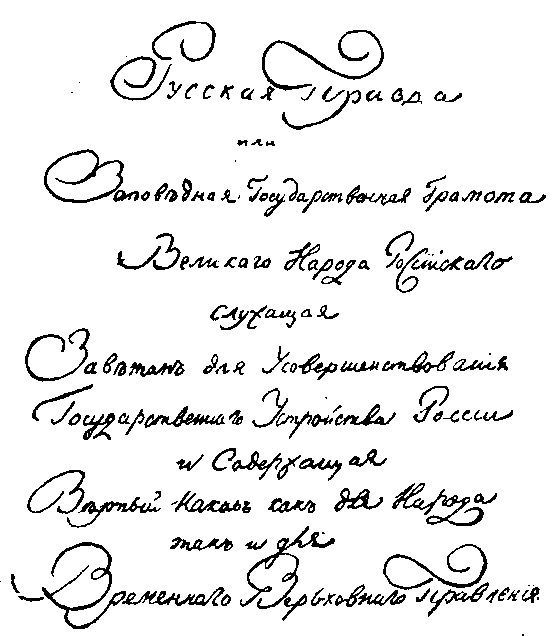 Русская Правда
или
Заповѣдная Государственная Грамота
Великаго Народа Россійскаго
служащая
Завѣтомъ для Усовершенствованія
Государственнаго Устройства России
и Содержащая
Вѣрный Наказъ какъ для Народа
такъ и для
Временнаго Верьховнаго Правленія.